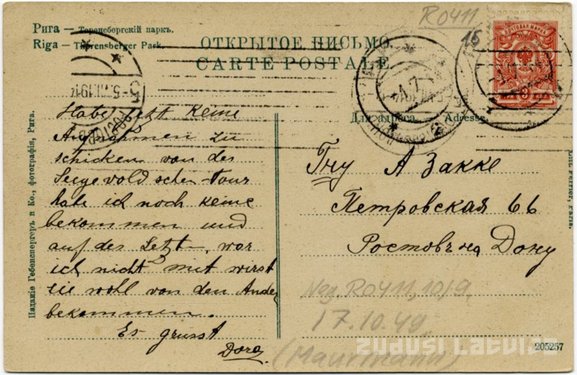 Рига — Торенсбергскій паркъ.
Riga — Thorensberger Park.
ОТКРЫТОЕ ПИСЬМО.
CARTE POSTALE
R0411
15
Для адреса. Adresse.
Habe jetzt keine
Aufnahmen zu
schicken von der
Segevoldschen-Tour
habe ich noch keine
bekommen und
auf der Letzt. war
ich nicht mit wirst
sie wohl von den Ander
bekommen.
Es grüsst
Dora
Гну А Закке
Петровская 66
Ростовъ на Дону
Neg. R0411, 10/9,
17.10.49
(Maurmann)
Изданіе Гебенспергеръ и Ко., фотографія, Рига.
205257
ZUDUSI LATVIJA